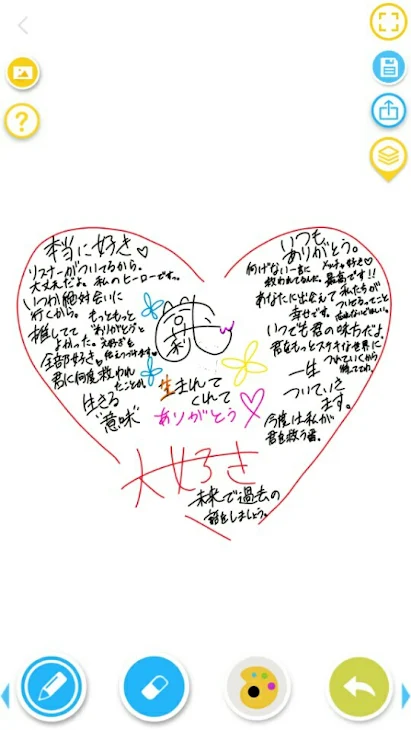 本当に好き♡
リスナーがついてるから。
大丈夫だよ。私のヒーローです。
いつか絶対会いに
行くから。もっともっと
推してて ありがとうと
よかった。大好きを
全部好き。伝えつづけます。
君に何度救われ
たことか。
生きる
"意味"
生まれて
くれて
ありがとう♡
いつも
ありがとう。
何げない一言に メッチャ好き♡
救われてるんだ。最高です!!
あなたに出会えて 私たちが
幸せです。 ついてるってこと
忘れないでほしい。
いつでも君の味方だよ。
君をもっとステキな世界に
つれていくから
待っててね。
一生
ついていき
ます。
今度は私が
君を救う番。
大好き
未来で過去の
話をしましょう。